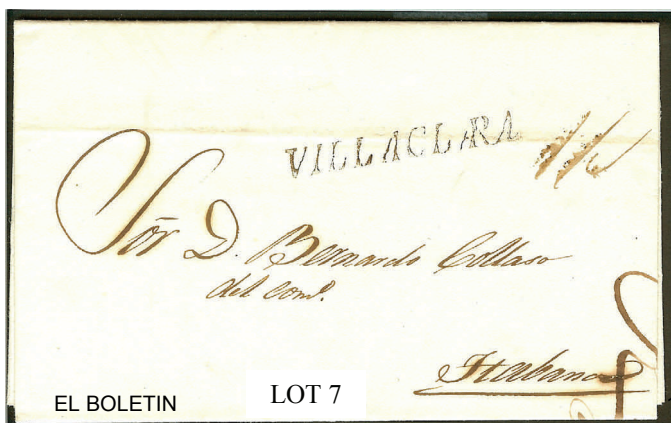 VILLACLARA
Sõr D. Bernardo Collaso
del comº.
Habana
EL BOLETIN
LOT 7